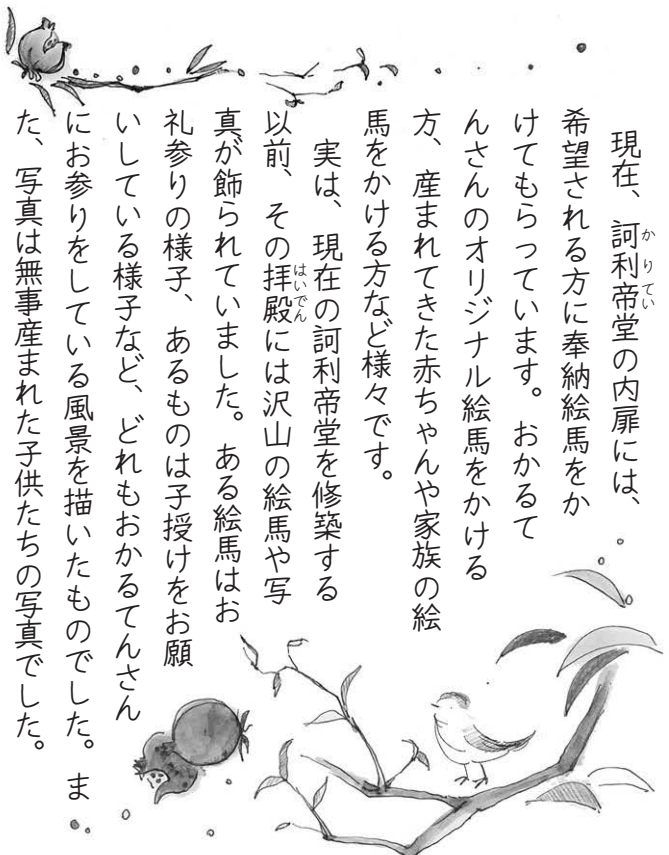 現在、訶利帝堂の内扉には、
希望される方に奉納絵馬をか
けてもらっています。おかるて
んさんのオリジナル絵馬をかける
方、産まれてきた赤ちゃんや家族の絵
馬をかける方など様々です。
実は、現在の訶利帝堂を修築する
以前、その拝殿には沢山の絵馬や写
真が飾られていました。ある絵馬はお
礼参りの様子、あるものは子授けをお願
いしている様子など、どれもおかるてんさん
にお参りをしている風景を描いたものでした。ま
た、写真は無事産まれた子供たちの写真でした。
かりてい
はいでん